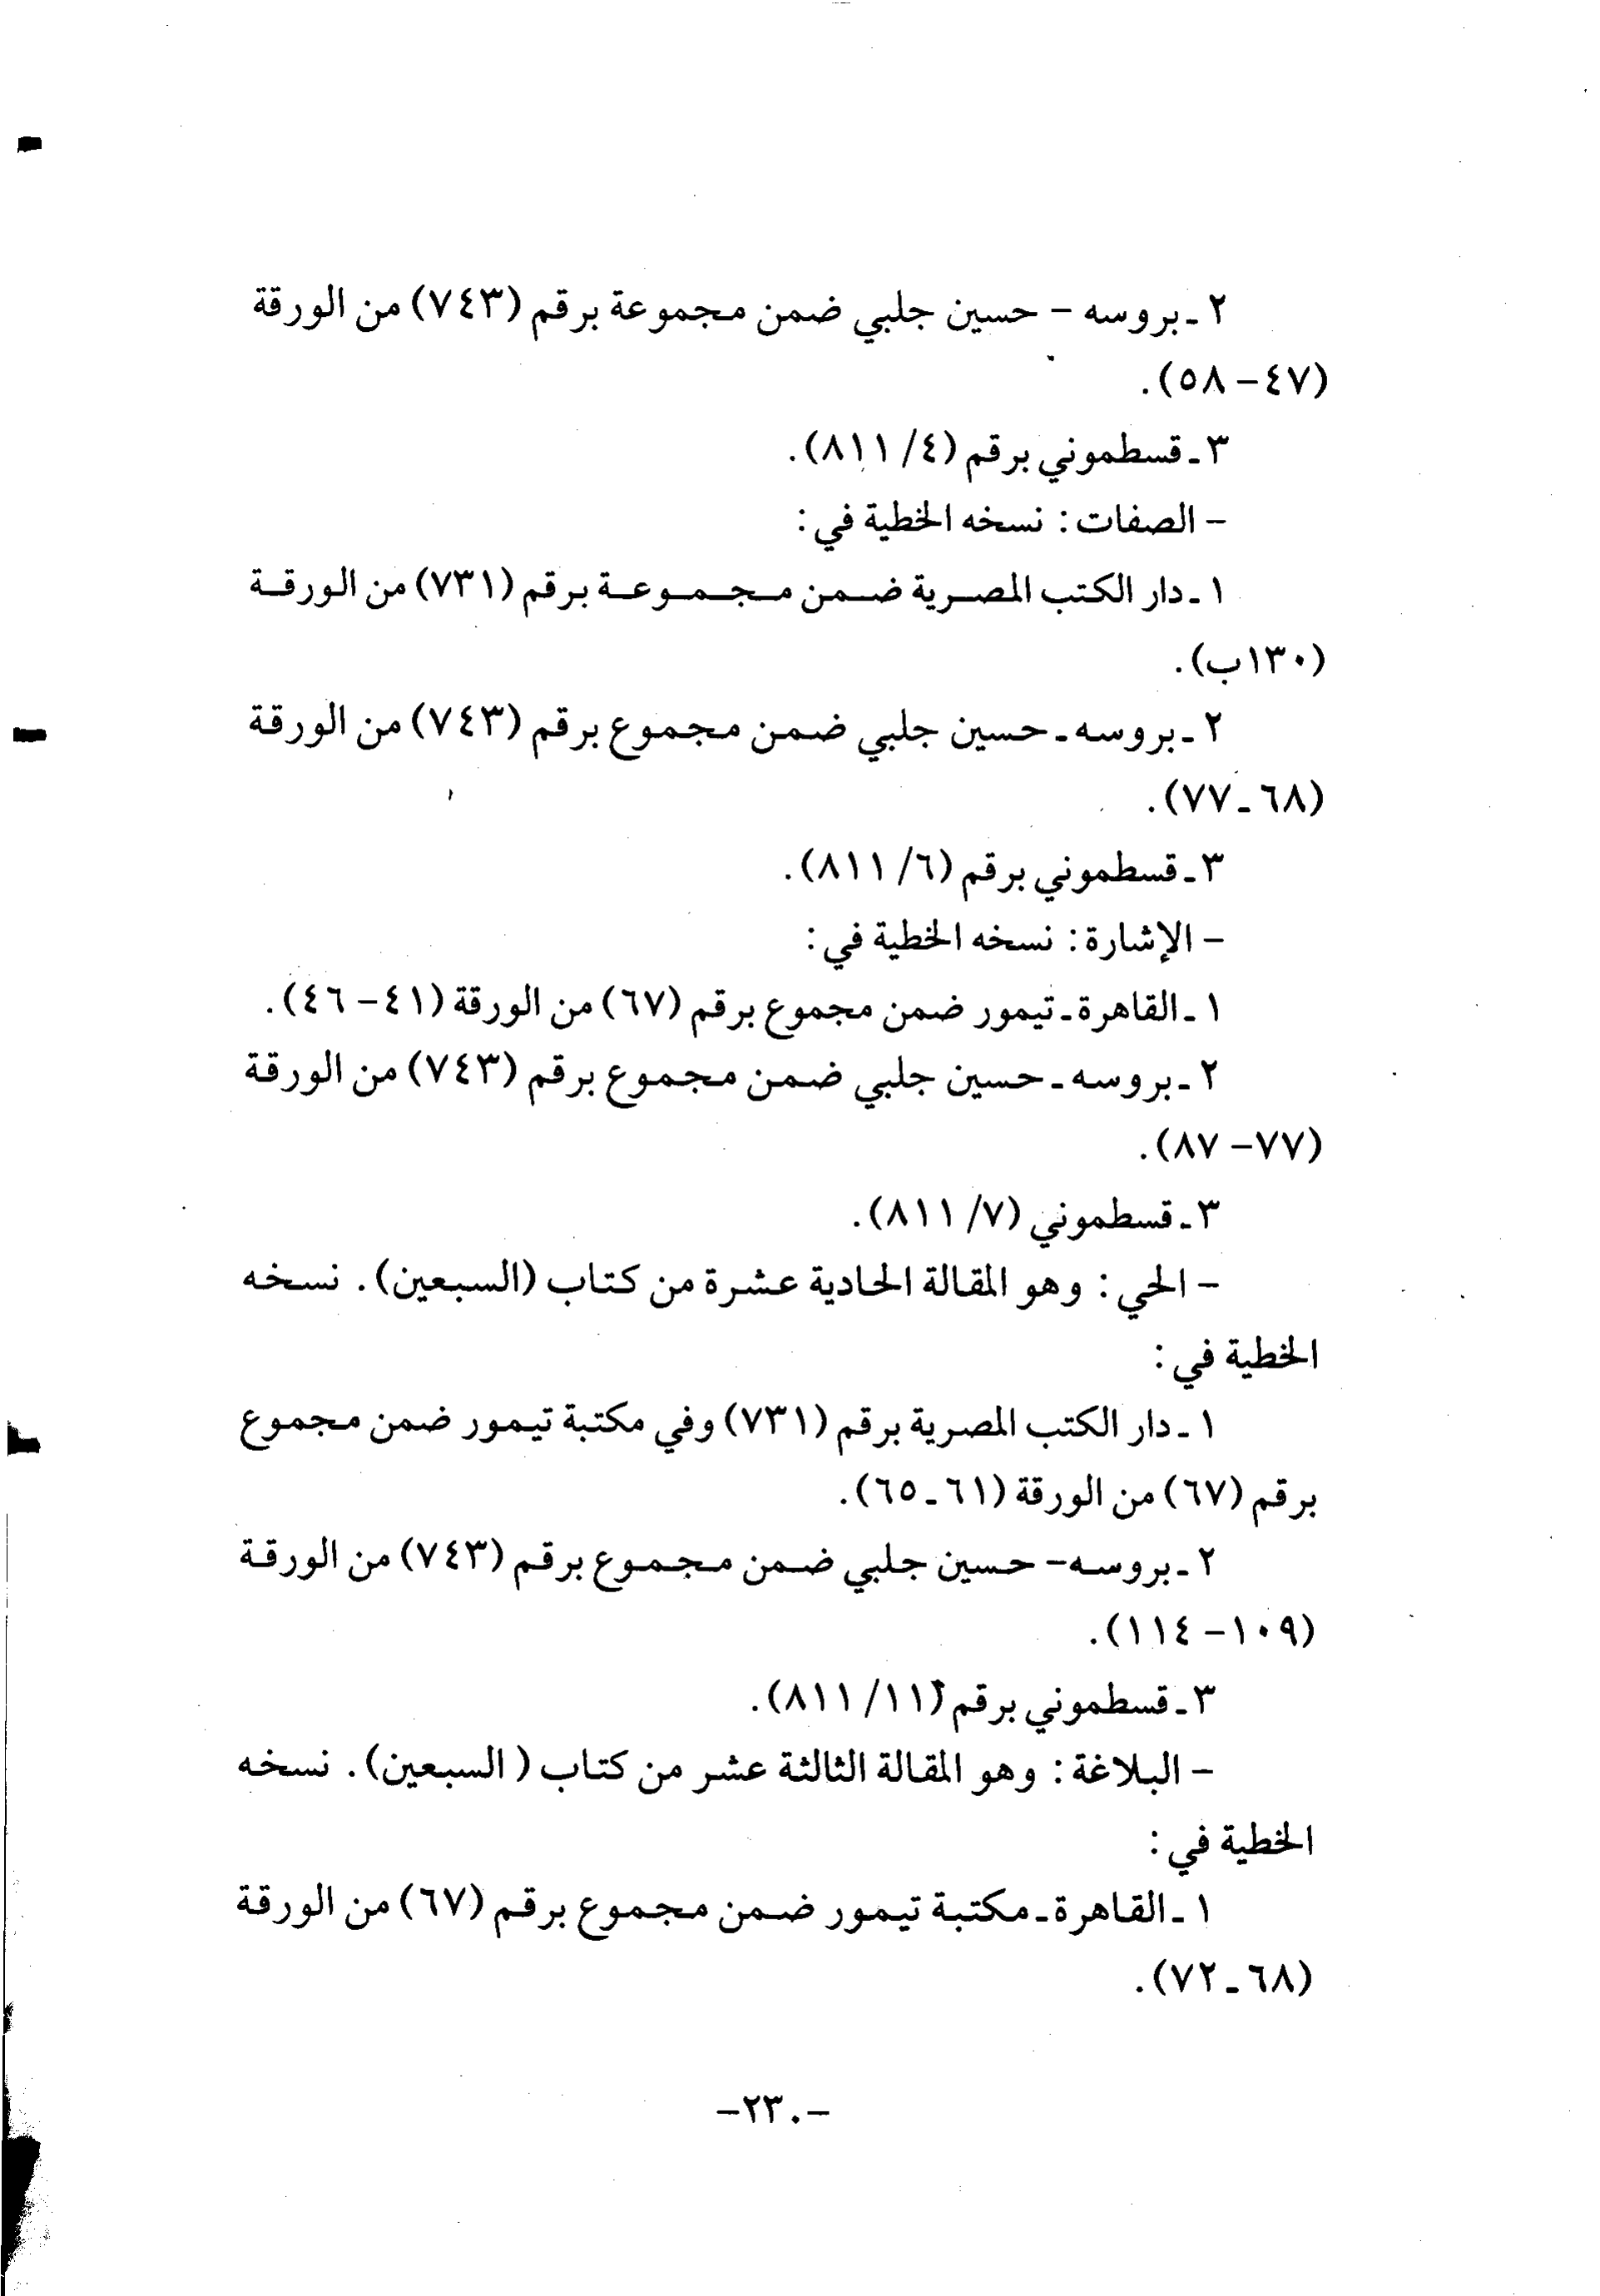 ٢ ـ بروسه - حسين جلبي ضمن مجموعة برقم (٧٤٣) من الورقة
(٤٧ - ٥٨).
٣ ـ قسطموني برقم (٤/ ٨١١).
- الصفات : نسخه الخطية في :
١ ـ دار الكتب المصرية ضمن مجموعة برقم (٧٣١) من الورقة
(١٣٠ب).
٢ ـ بروسه ـ حسين جلبي ضمن مجموع برقم (٧٤٣) من الورقة
(٦٨ ـ ٧٧).
٣ ـ قسطموني برقم (٦/ ٨١١).
- الإشارة : نسخه الخطية في :
١ ـ القاهرة ـ تيمور ضمن مجموع برقم (٦٧) من الورقة (٤١ - ٤٦).
٢ ـ بروسه ـ حسين جلبي ضمن مجموع برقم (٧٤٣) من الورقة
(٧٧ - ٨٧).
٣ ـ قسطموني (٧/ ٨١١).
- الحي : وهو المقالة الحادية عشرة من كتاب (السبعين). نسخه
الخطية في :
١ ـ دار الكتب المصرية برقم (٧٣١) وفي مكتبة تيمور ضمن مجموع
برقم (٦٧) من الورقة (٦١ ـ ٦٥).
٢ ـ بروسه - حسين جلبي ضمن مجموع برقم (٧٤٣) من الورقة
(١٠٩ - ١١٤).
٣ ـ قسطموني برقم (١١/ ٨١١).
- البلاغة : وهو المقالة الثالثة عشر من كتاب ( السبعين). نسخه
الخطية في :
١ ـ القاهرة ـ مكتبة تيمور ضمن مجموع برقم (٦٧) من الورقة
(٦٨ ـ ٧٢).
-٢٣٠-